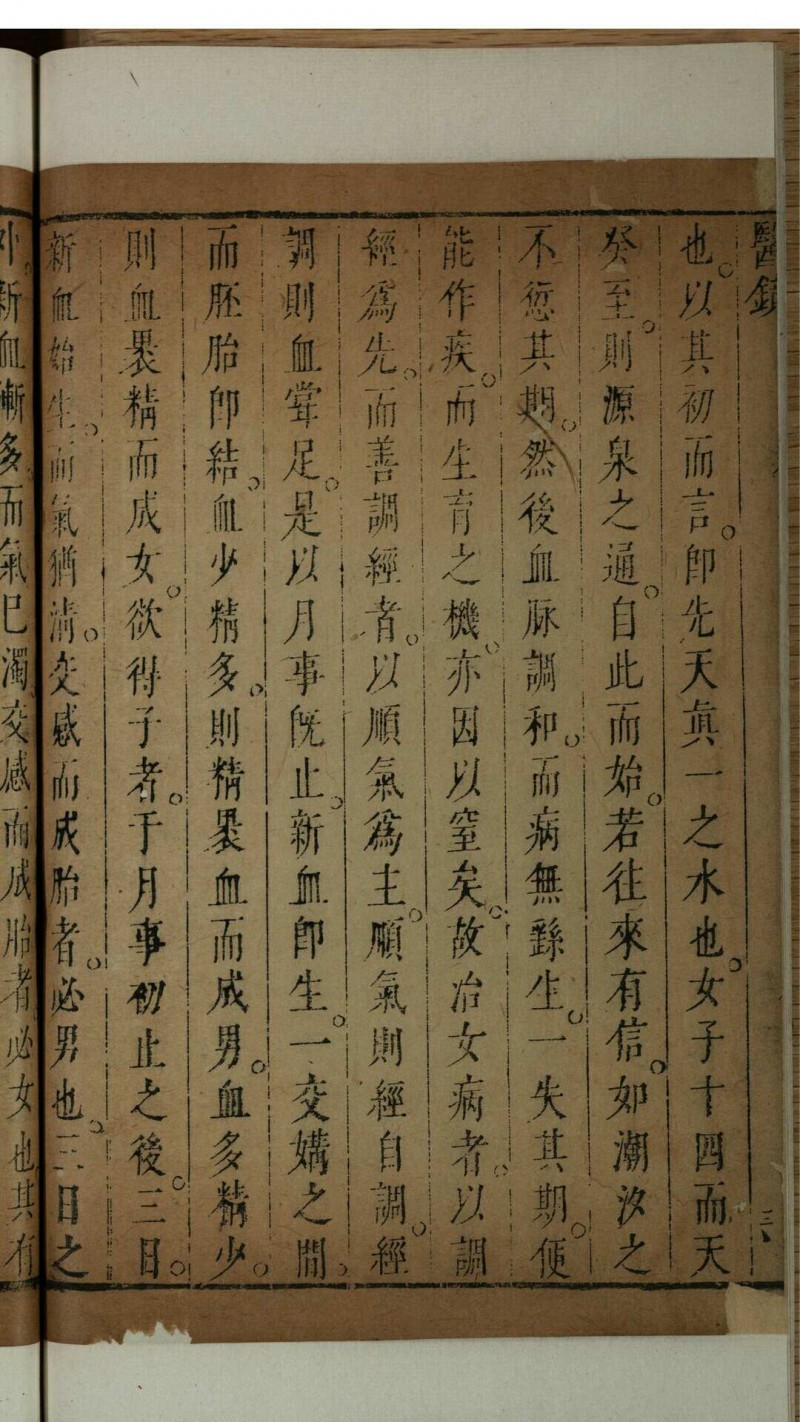 醫鏡
三八
也。以其初而言。卽先天眞一之水也。女子十四而天
癸至。則源泉之通。自此而始。若往來有信。如潮汐之
不愆其期。然後血脉調和。而病無繇生。一失其期。便
能作疾。而生育之機。亦因以窒矣。故治女病者。以調
經爲先。而善調經者。以順氣爲主。順氣則經自調。經
調則血常足。是以月事旣止。新血卽生。一交媾之間。
而胚胎卽結。血少精多。則精裹血而成男。血多精少。
則血裹精而成女。欲得子者。于月事初止之後。三日。
新血始生。而氣猶淸。交感而成胎者。必男也。三日之
外。新血漸多。而氣已濁。交感而成胎者必女也其有